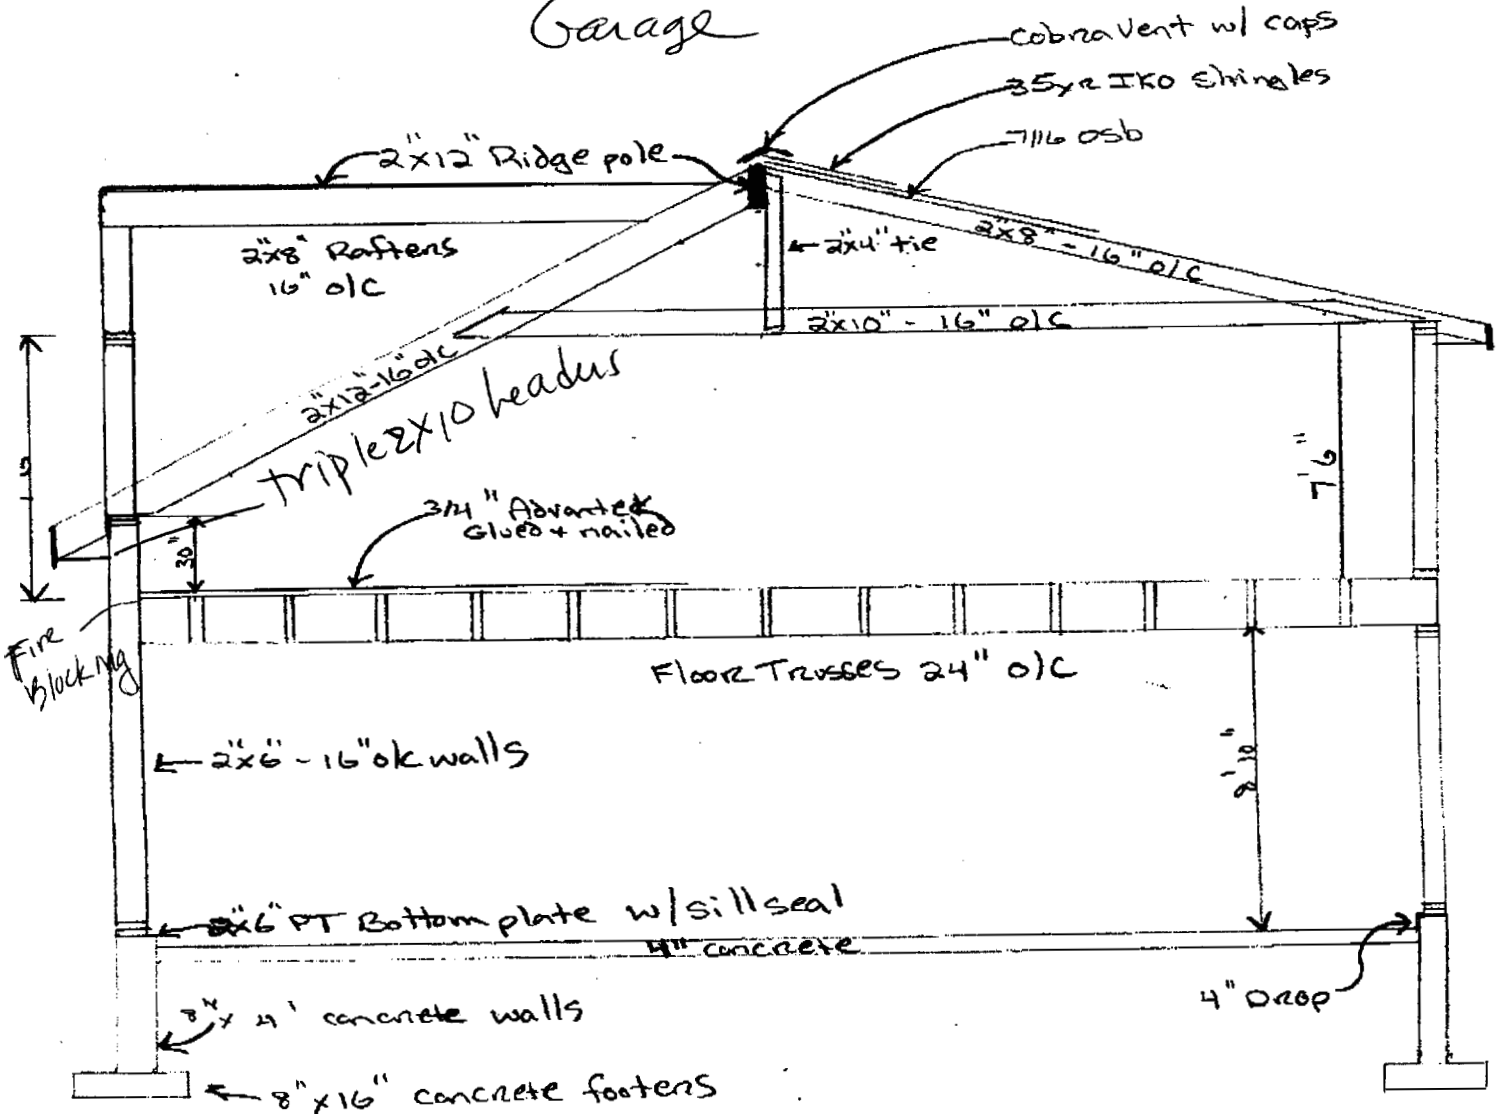 Garage
Cobra Vent w/ caps
35yr IKO Shingles
7/16 OSb
2"x12" Ridge pole
2"x8" Rafters
16" o/c
2"x4" tie
2"x8" - 16" o/c
2"x10" - 16" o/c
2"x12"-16" o/c
triple 2x10 headers
7'6"
3/4" Advantek
Glued + nailed
30"
Fire
Blocking
Floor Trusses 24" o/c
2"x6" - 16" o/c walls
2"x6" PT Bottom plate w/ sill seal
4" concrete
4" Drop
8"x 4' concrete walls
8"x16" concrete footers